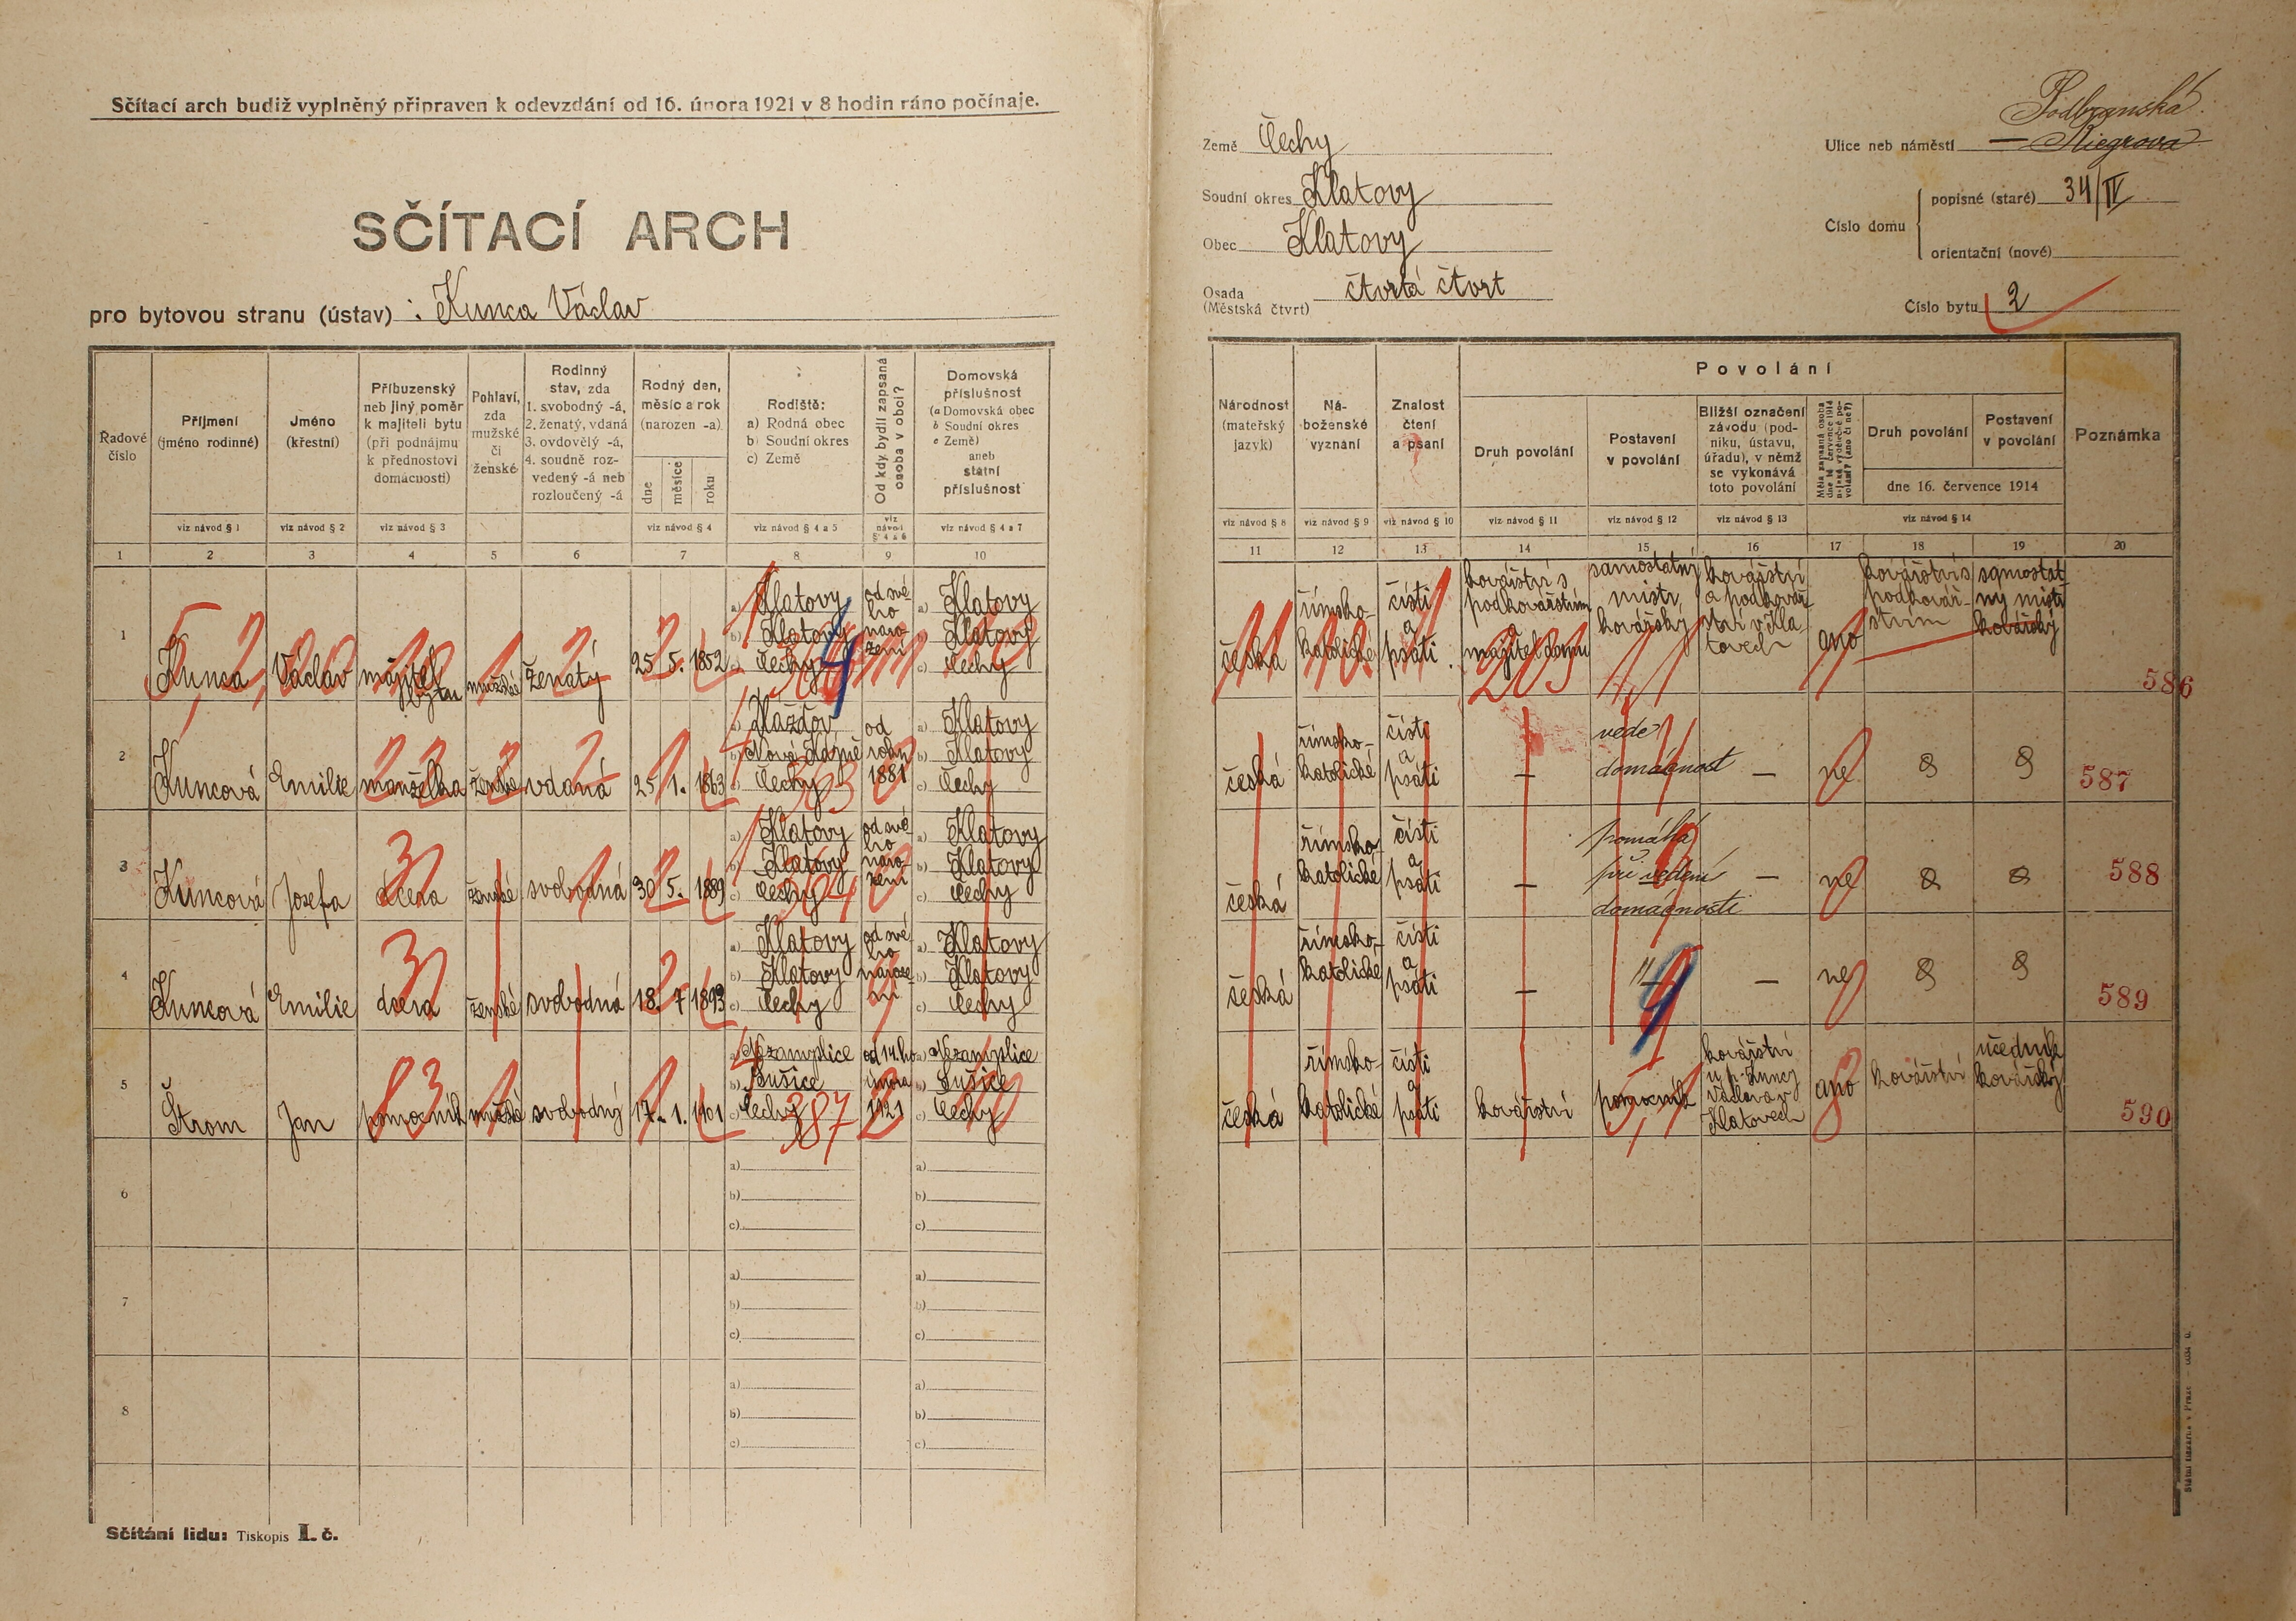 Sčítací arch budiž vyplněný připraven k odevzdání od 16. února 1921 v 8 hodin ráno počínaje.
SČÍTACÍ ARCH
pro bytovou stranu (ústav) : Kunca Václav
Země Čechy
Soudní okres Klatovy
Obec Klatovy
Osada (Městská čtvrť) čtvrtá čtvrt
Podbranská
Ulice neb náměstí Riegrova
Číslo domu
popisné (staré) 34/IV
orientační (nové)
Číslo bytu 2
Řadové číslo
Příjmení (jméno rodinné)
Jméno (křestní)
Příbuzenský neb jiný poměr k majiteli bytu (při podnájmu k přednostovi domácnosti)
Pohlaví, zda mužské či ženské
Rodinný stav, zda 1. svobodný -á, 2. ženatý, vdaná 3. ovdovělý -á, 4. soudně rozvedený -á neb rozloučený -á
Rodný den, měsíc a rok (narozen -a)
dne měsíce roku
Rodiště: a) Rodná obec b) Soudní okres c) Země
Od kdy bydlí zapsaná osoba v obci?
Domovská příslušnost (a Domovská obec b Soudní okres c Země) aneb státní příslušnost
viz návod § 1
viz návod § 2
viz návod § 3
viz návod § 4
viz návod § 4 a 5
viz návod § 4 a 6
viz návod § 4 a 7
1 2 3 4 5 6 7 8 9 10
Národnost (mateřský jazyk)
Náboženské vyznání
Znalost čtení a psaní
Povolání
Druh povolání
Postavení v povolání
Bližší označení závodu (podniku, ústavu, úřadu), v němž se vykonává toto povolání
Měla zapsaná osoba dne 16. července 1914 nějaké výdělečné povolání? (ano či ne?)
Druh povolání
Postavení v povolání
dne 16. července 1914
Poznámka
viz návod § 8
viz návod § 9
viz návod § 10
viz návod § 11
viz návod § 12
viz návod § 13
viz návod § 14
11 12 13 14 15 16 17 18 19 20
1 Kunca Václav majitel bytu mužské ženatý 25 5. 1852 a) Klatovy b) Klatovy c) Čechy od svého narození a) Klatovy b) Klatovy c) Čechy
česká římsko-katolické čísti a psáti kovářství s podkovářstvím majitel domu samostatný mistr kovářský kovářství a podkovářství v Klatovech ano kovářství s podkovářstvím samostatný mistr kovářský 586
2 Kuncová Emilie manželka ženské vdaná 25 1. 1863 b) Nová c) Čechy od roku 1881 a) Klatovy b) Klatovy c) Čechy
česká římsko-katolické čísti a psáti — vede domácnost — ne 587
3 Kuncová Josefa dcera ženské svobodná 30 5. 1889 a) Klatovy b) Klatovy c) Čechy od svého narození a) Klatovy b) Klatovy c) Čechy
česká římsko-katolické čísti a psáti — pomáhá při vedení domácnosti — ne 588
4 Kuncová Emilie dcera ženské svobodná 18. 7 1893 a) Klatovy b) Klatovy c) Čechy od svého narození a) Klatovy b) Klatovy c) Čechy
česká římsko-katolické čísti a psáti — " — ne 589
5 Štrom Jan pomocník mužské svobodný 17. 1. 1901 a) Nezamyslice b) Sušice c) Čechy od 14. ho února 1921 a) Nezamyslice b) Sušice c) Čechy
česká římsko-katolické čísti a psáti kovářství pomocník kovářství u p. Kuncy Václava v Klatovech ano kovářství učedník kovářský 590
6 a) b) c) a) b) c)
7 a) b) c) a) b) c)
8 a) b) c) a) b) c)
Sčítání lidu: Tiskopis I. č.